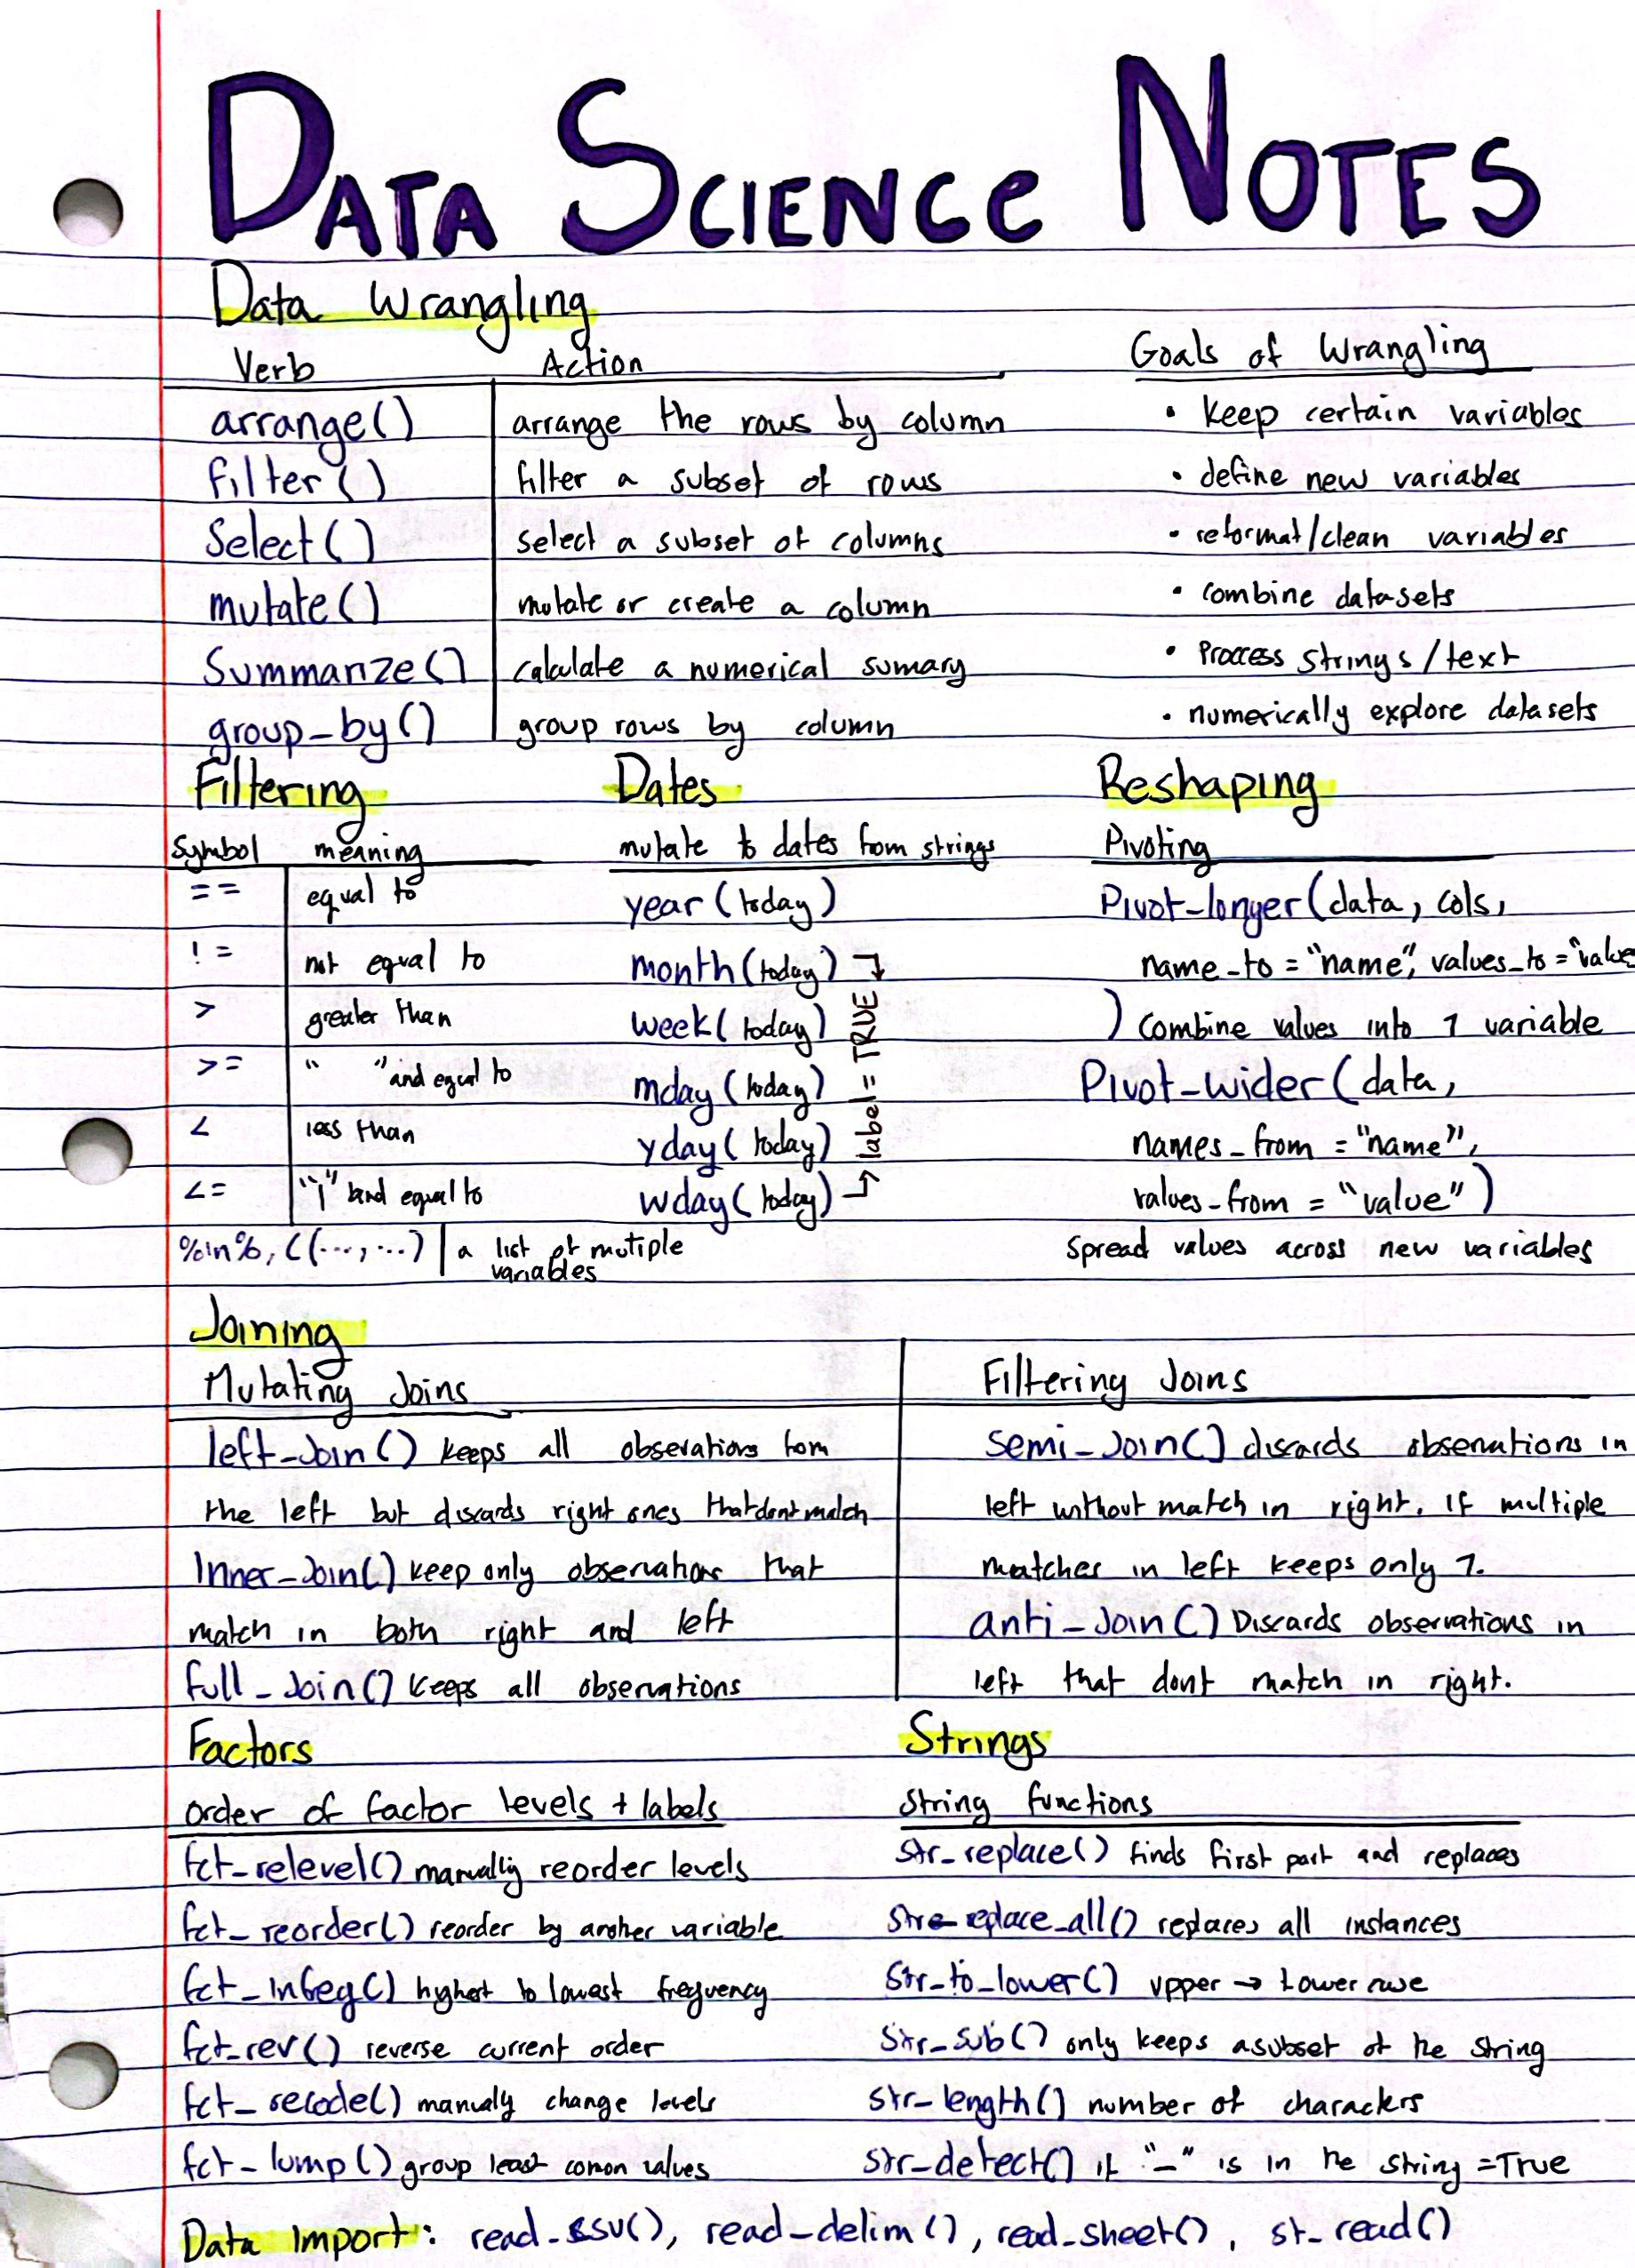 DATA SCIENCE NOTES
Data Wrangling
Verb Action
arrange() arrange the rows by column
filter() filter a subset of rows
Select() select a subset of columns
mutate() mutate or create a column
Summarize() calculate a numerical sumary
group_by() group rows by column
Goals of Wrangling
• Keep certain variables
• define new variables
• reformat/clean variables
• combine datasets
• Process strings/text
• numerically explore datasets
Filtering
Symbol meaning
== equal to
!= not equal to
> greater than
>= " " and equal to
< less than
<= " " and equal to
%in%, c(...,...) | a list of mutiple
variables
Dates
mutate to dates from strings
year(today)
month(today)
week(today)
mday(today)
yday(today)
wday(today)
label=TRUE
Reshaping
Pivoting
Pivot_longer(data, cols,
name_to = "name", values_to = "value
) Combine values into 1 variable
Pivot_wider(data,
names_from = "name",
values_from = "value")
Spread values across new variables
Joining
Mutating Joins
left_Join() keeps all obserations from
the left but discards right ones that dont match
Inner_Join() keep only observations that
match in both right and left
full_Join() keeps all observations
Filtering Joins
semi_Join() discards observations in
left without match in right. If multiple
matches in left keeps only 1.
anti_Join() Discards observations in
left that dont match in right.
Factors
order of factor levels + labels
fct_relevel() manually reorder levels
fct_reorder() reorder by another variable
fct_infreq() highest to lowest frequency
fct_rev() reverse current order
fct_recode() manualy change levels
fct_lump() group least comon values
Strings
String functions
str_replace() finds first part and replaces
str_replace_all() replaces all instances
Str_to_lower() upper → Lower case
Str_sub() only keeps a subset of the string
str_length() number of characters
str_detect() if "_" is in the string = True
Data Import: read_csv(), read_delim(), read_sheet(), st_read()